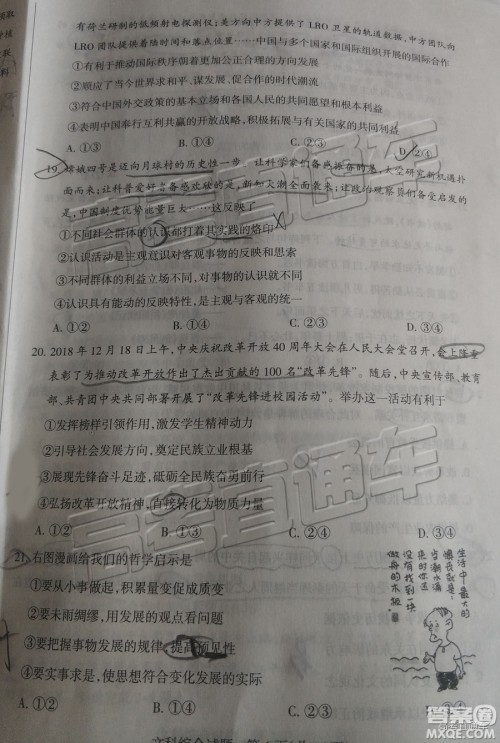 有荷兰研制的低频射电探测仪；美方向中方提供了 LRO 卫星的轨道数据，中方团队向
LRO 团队提供着陆时间和落点位置……中国与多个国家和国际组织开展的国际合作
①有利于推动国际秩序朝着更加公正合理的方向发展
②顺应了当今世界求和平、谋发展、促合作的时代潮流
③符合中国外交政策的基本立场和各国人民的共同利益
④表明中国奉行互利共赢的开放战略，积极参与实现共同利益
A. ①③ B. ①④ C. ②③ D. ②④
19. 嫦娥四号是迈向月球村的历史性一步。让科学家们备感振奋的是，太空研究新机遇扑
面而来；让科普爱好者备感欢欣的是，新知大潮全面袭来；让政治观察员们备受启发的
是，中国制度优势能量巨大……这反映了
①不同社会群体的认识都打着其实践的烙印
②认识活动是主观意识对客观事物的反映活动
③不同群体的利益立场不同，对事物的认识就不同
④认识具有能动的反映特性，是主观与客观的统一
A. ①② B. ①④ C. ②③ D. ③④
20. 2018 年 12 月 18 日上午，中央庆祝改革开放 40 周年大会在人民大会堂召开，会上隆重
表彰了为推动改革开放作出了杰出贡献的 100 名“改革先锋”。随后，中央宣传部、教育
部、共青团中央共同部署开展了“改革先锋进校园活动”。举办这一活动有利于
①发挥榜样引领作用，激发学生精神动力
②引导社会发展方向，奠定民族立业根基
③展现先锋奋斗足迹，砥砺全民族奋勇前行
④弘扬改革开放精神，直接转化为物质力量
A. ①② B. ①③ C. ②④ D. ③④
21. 右图漫画给我们的哲学启示是
①要从小事做起，积累量变促成质变
②要未雨绸缪，用发展的观点看问题
③要把握事物发展的规律，提高预见性
④要实事求是，使思想符合变化发展的实际
A. ①② B. ①④ C. ②③ D. ③④
生活中最大的
遗憾就是：
当潮水涌
来时你还
没有找到一块
做舟的木板。
高考直通车
高考直通车
答案圈